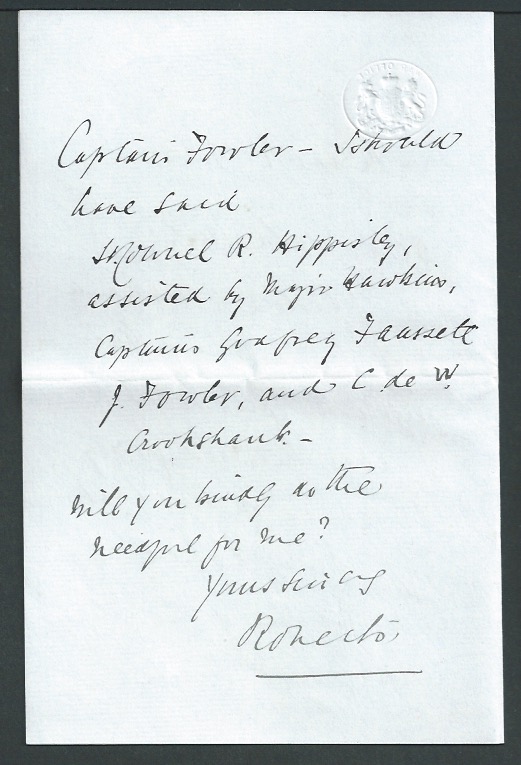 WAR OFFICE
Captain Fowler – I should
have said
Lt Colonel R. Hippisley,
assisted by Major Hawkins,
Captains Godfrey Faussett
J. Fowler, and C. de W.
Crookshank. –
Will you kindly do the
needful for me?
Yours sincly
Roberts